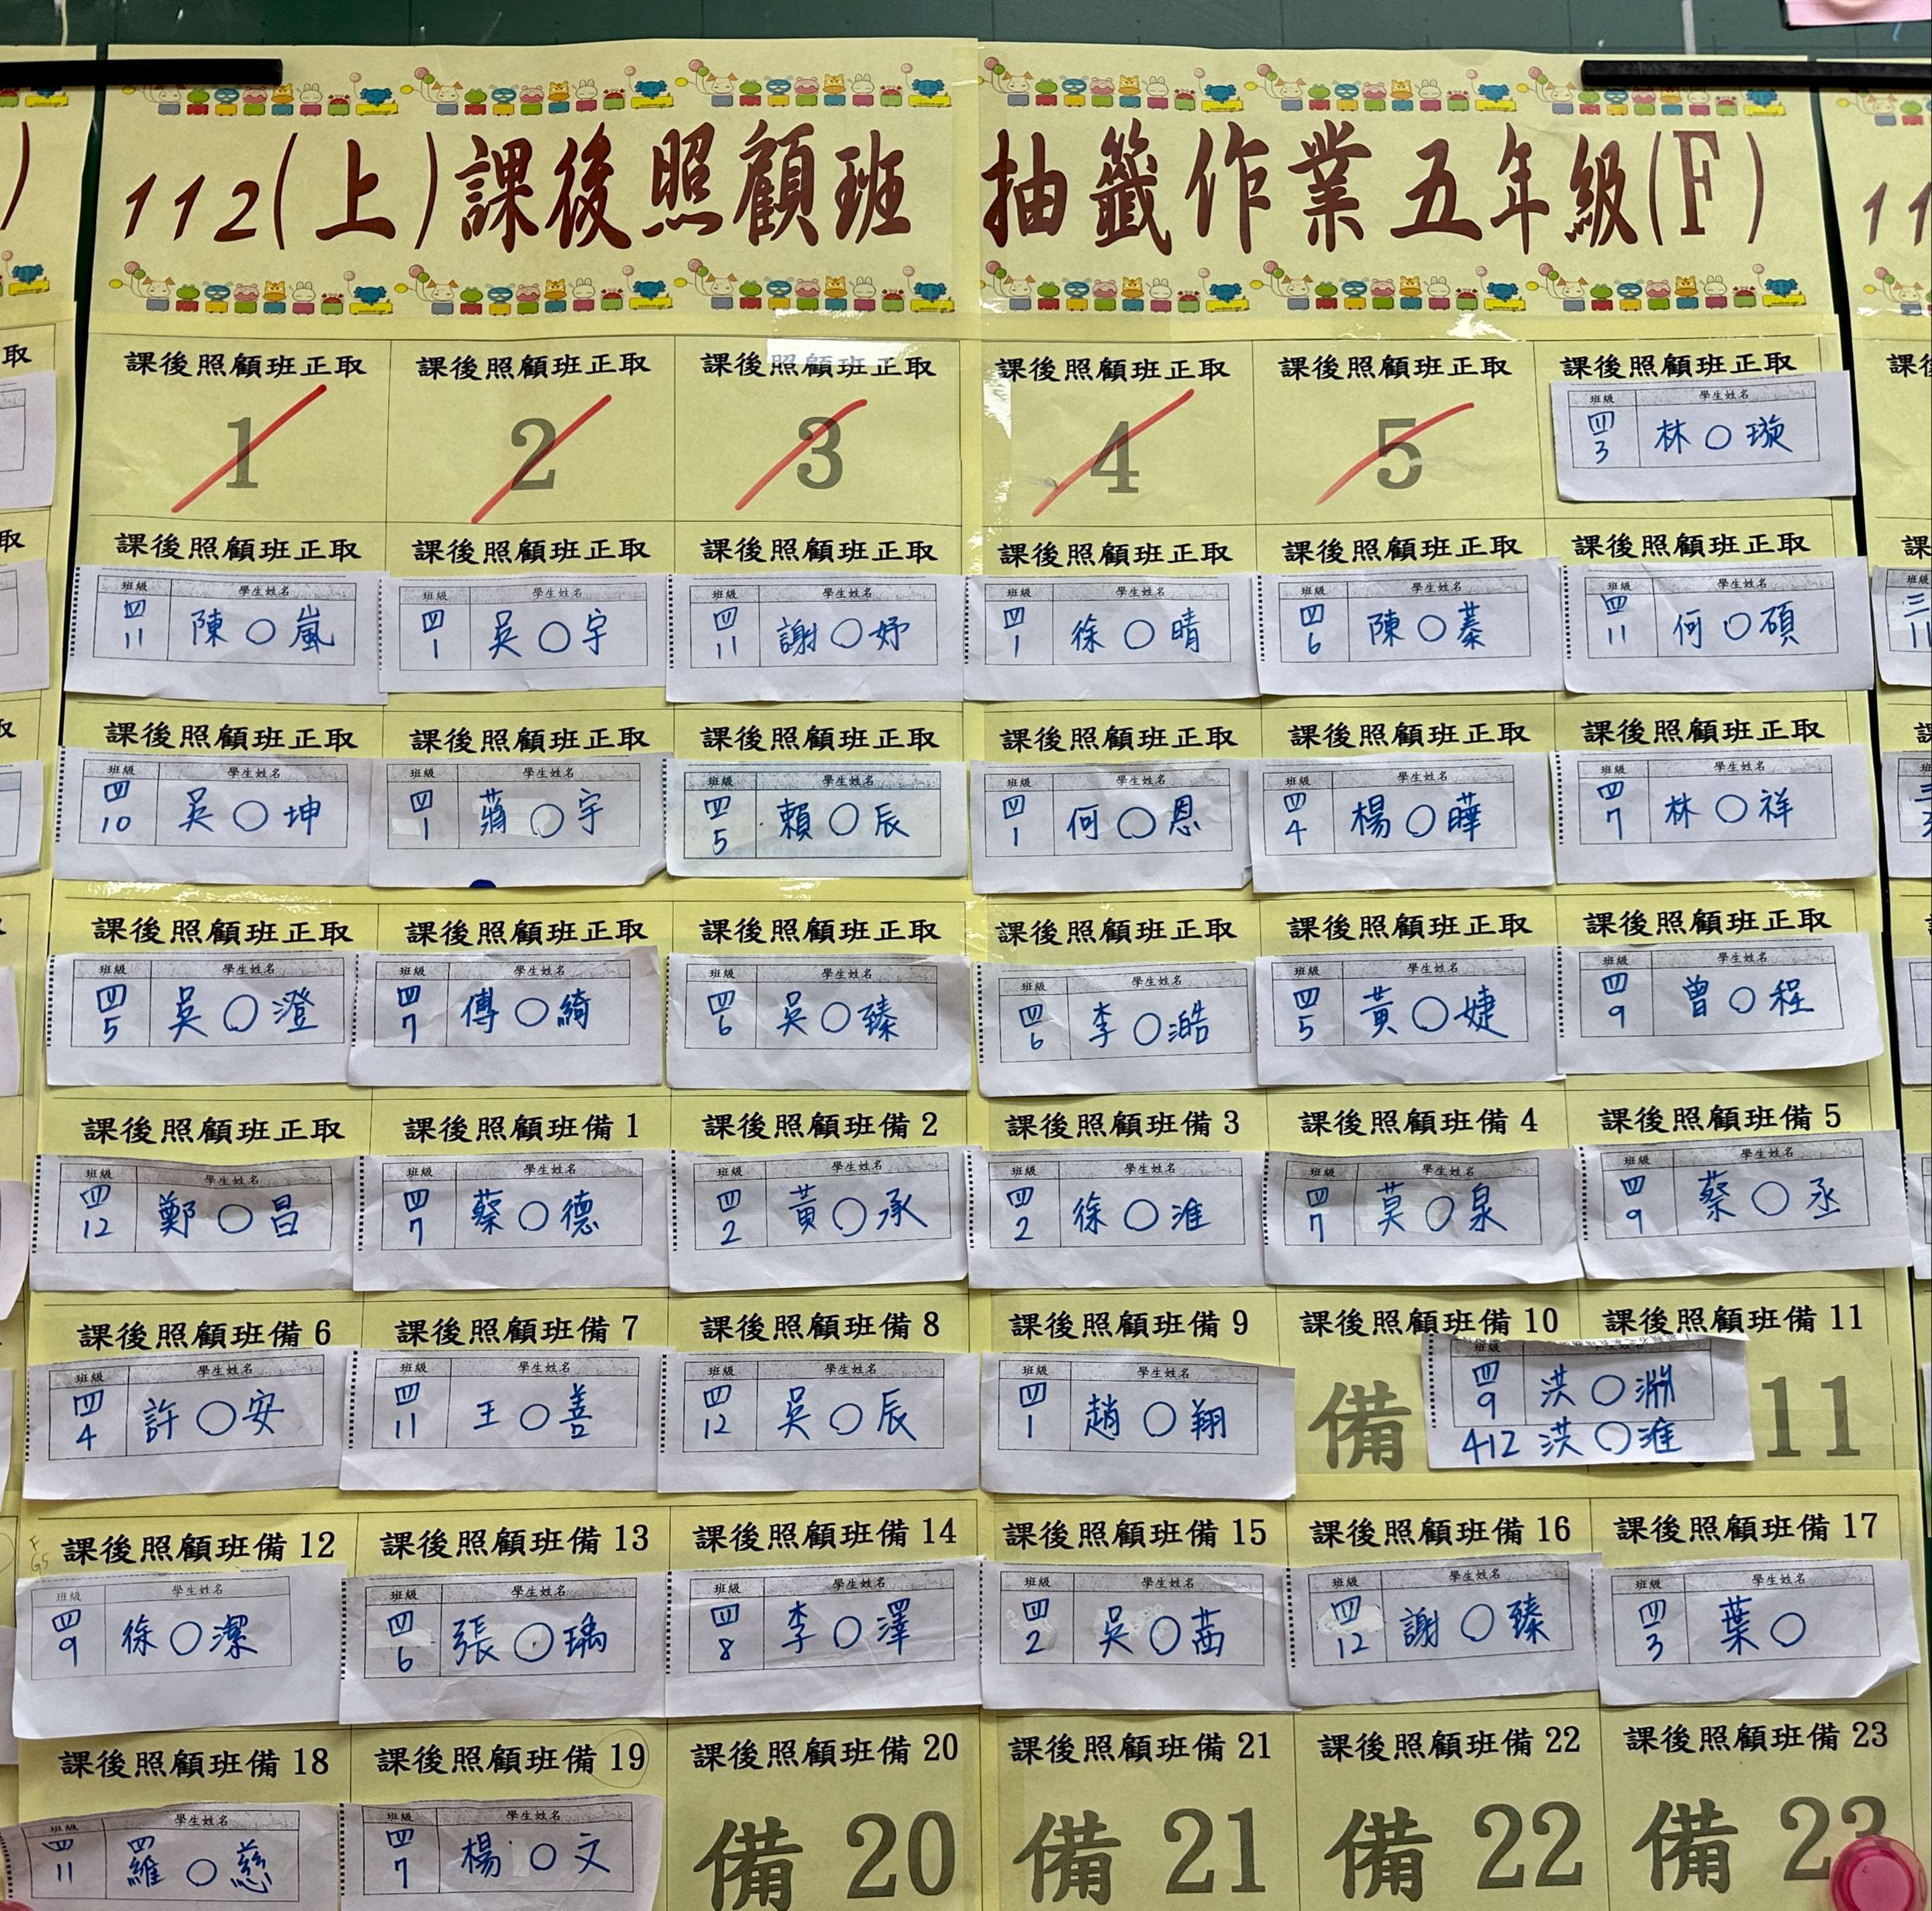 112(上)課後照顧班 抽籤作業五年級(F)
課後照顧班正取 課後照顧班正取 課後照顧班正取 課後照顧班正取 課後照顧班正取 課後照顧班正取
1 2 3 4 5
班級 學生姓名
四3 林○璇
課後照顧班正取 課後照顧班正取 課後照顧班正取 課後照顧班正取 課後照顧班正取 課後照顧班正取
班級 學生姓名 班級 學生姓名 班級 學生姓名 班級 學生姓名 班級 學生姓名 班級 學生姓名
四11 陳○嵐 四1 吳○宇 四11 謝○妤 四1 徐○晴 四6 陳○蓁 四11 何○碩
課後照顧班正取 課後照顧班正取 課後照顧班正取 課後照顧班正取 課後照顧班正取 課後照顧班正取
班級 學生姓名 班級 學生姓名 班級 學生姓名 班級 學生姓名 班級 學生姓名 班級 學生姓名
四10 吳○坤 四1 蔣○宇 四5 賴○辰 四1 何○恩 四4 楊○曄 四7 林○祥
課後照顧班正取 課後照顧班正取 課後照顧班正取 課後照顧班正取 課後照顧班正取 課後照顧班正取
班級 學生姓名 班級 學生姓名 班級 學生姓名 班級 學生姓名 班級 學生姓名 班級 學生姓名
四5 吳○澄 四7 傅○綺 四6 吳○臻 四6 李○澔 四5 黃○婕 四9 曾○程
課後照顧班正取 課後照顧班備1 課後照顧班備2 課後照顧班備3 課後照顧班備4 課後照顧班備5
班級 學生姓名 班級 學生姓名 班級 學生姓名 班級 學生姓名 班級 學生姓名 班級 學生姓名
四12 鄭○昌 四7 蔡○德 四2 黃○承 四2 徐○淮 四7 莫○泉 四9 蔡○丞
課後照顧班備6 課後照顧班備7 課後照顧班備8 課後照顧班備9 課後照顧班備10 課後照顧班備11
班級 學生姓名 班級 學生姓名 班級 學生姓名 班級 學生姓名 備 班級 11
四4 許○安 四11 王○善 四12 吳○辰 四1 趙○翔 四9 洪○淵
412 洪○淮
課後照顧班備12 課後照顧班備13 課後照顧班備14 課後照顧班備15 課後照顧班備16 課後照顧班備17
班級 學生姓名 班級 學生姓名 班級 學生姓名 班級 學生姓名 班級 學生姓名 班級 學生姓名
四9 徐○潔 四6 張○瑀 四8 李○澤 四2 吳○茜 四12 謝○臻 四3 葉○
課後照顧班備18 課後照顧班備19 課後照顧班備20 課後照顧班備21 課後照顧班備22 課後照顧班備23
班級 學生姓名 班級 學生姓名 備20 備21 備22 備23
四11 羅○慈 四7 楊○文